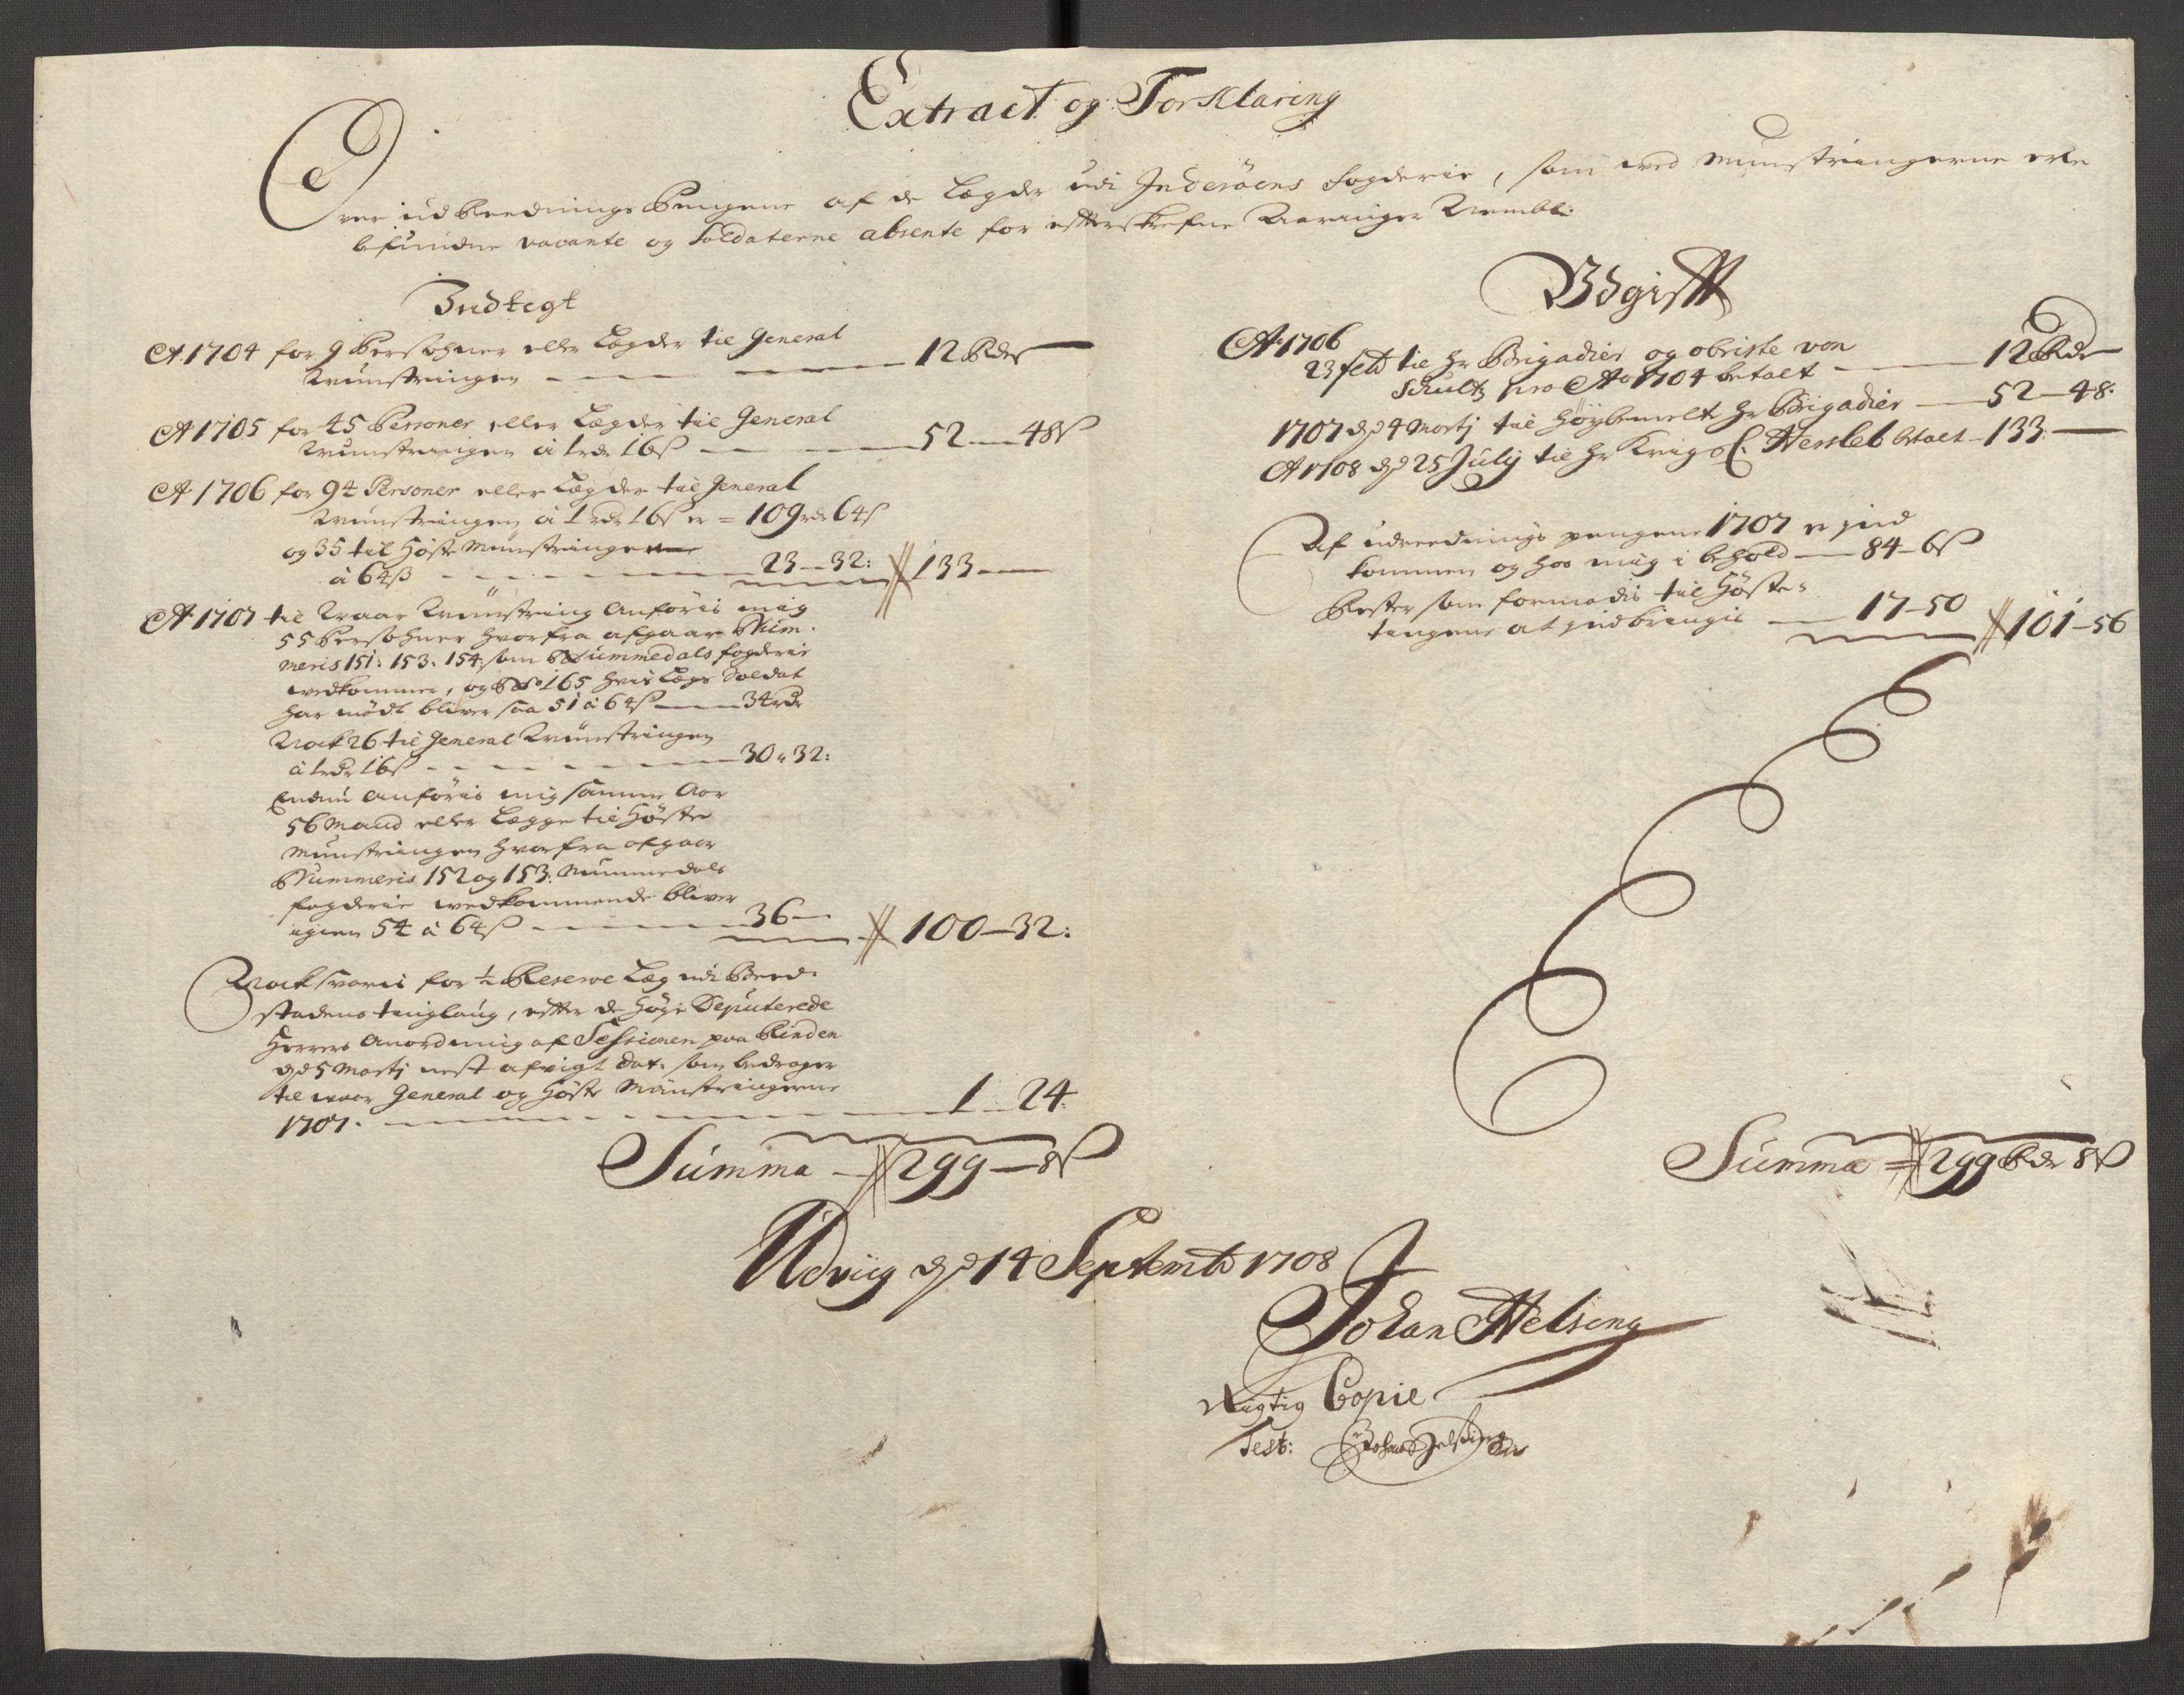 Extract og Forklaring
Over udReednings Pengene af de Lægder udi Inderöens fogderie, som wed Munstringerne ere
befundne vacante og Soldaterne absente for efftterskrefne Aaringer Nembl:
Indtegt
Ao 1704 for 9 Persohner eller Lægder til General
Munstringen — 12 Rdr
Ao 1705 for 45 Personer eller Lægder til General
Munstringen à 1 rdr 16 ß — 52 — 48 ß
Ao 1706 for 94 Personer eller Lægder til General
Munstringen à 1 rdr 16 ß er = 109 rdr 64 ß
og 35 til Höste Munstringerne
à 64 ß — 23 — 32: 133 —
Ao 1707 til Waar Munstring Anföris mig
55 Persohner hvorfra afgaar Num-
meris 151: 153. 154 som Nummedals fogderie
wedkommer, og No 165 hvis Lægs Soldat
har mödt bliver saa 51 à 64 ß — 34 rdr
Nock 26 til General Munstringen
à 1 rdr 16 ß — 30 „ 32:
Endnu Anföris mig samme Aar
56 Mand eller Lægge til Höste
Munstringen hvorfra afgaar
Nummeris 152 og 153: Nummedals
fogderie wedkommende bliver
igien 54 à 64 ß — 36 — 100 — 32:
Nock svaris for ½ Reserve Læg udi Beed-
stadens tinglaug, effter de Höye Deputerede
Herrers Anordning af Sessionen paa Rinden
dend 5 Martj nest afvigt dat. som bedrager
til waar General og Höste Munstringerne
1707. — 1 — 24:
Summa — 299 — 8 ß
Udgifft
Ao 1706
23 feb til Hr Brigadier og obriste von
Schultz pro Ao 1704 betalt — 12 Rdr
1707 dend 4 Martj til Höybemelte Hr Brigadier — 52 — 48:
Ao 1708 dend 25 July til Hr Krigs C. Hersleb betalt — 133: —
Af udreednings pengene 1707 er ind
kommen og hos mig i behold — 84 — 6 ß
Rester som formodis til Höste-
tingene at indbringis — 17 — 50 101 — 56
Summa = 299 Rdr 8 ß
Udviig dend 14 Septemb 1708
Johan Helsing
Rigtig Copie
Test: